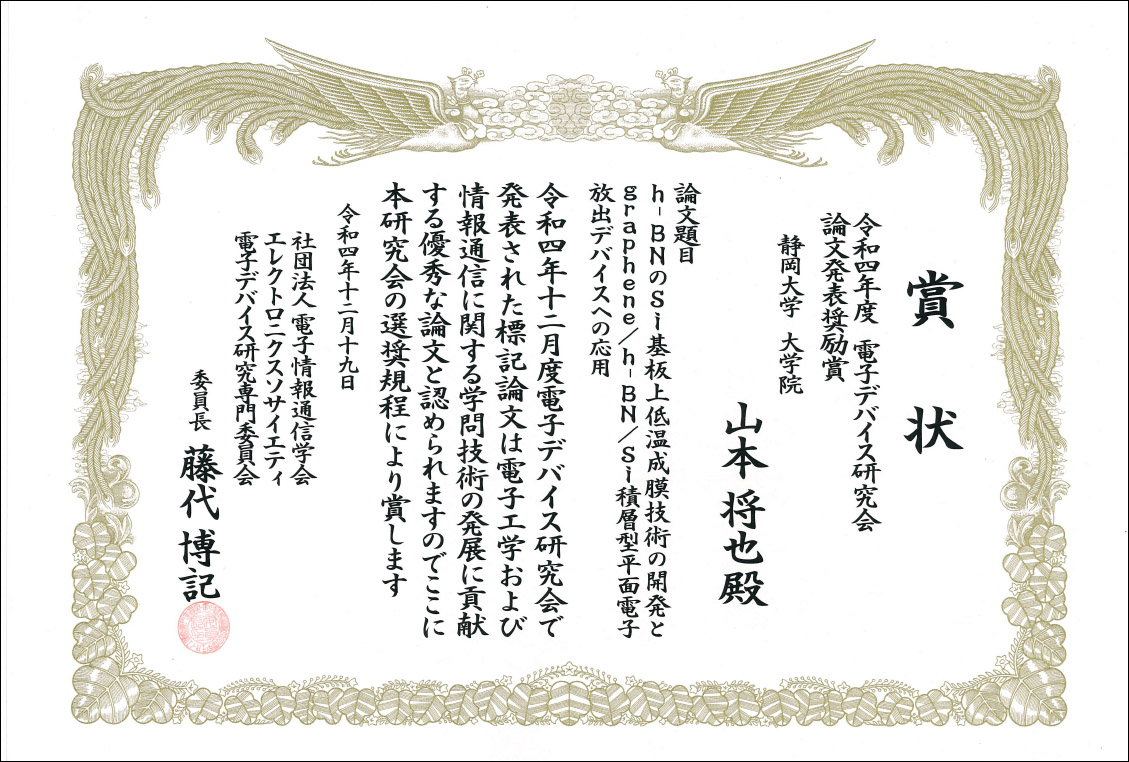 賞状
令和四年度 電子デバイス研究会
論文発表奨励賞
静岡大学 大学院
山本 将也 殿
論文題目
h-BNのSi基板上低温成膜技術の開発と
graphene/h-BN/Si積層型平面電子
放出デバイスへの応用
令和四年十二月度電子デバイス研究会で
発表された標記論文は電子工学および
情報通信に関する学問技術の発展に貢献
する優秀な論文と認められますのでここに
本研究会の選奨規程により賞します
令和四年十二月十九日
社団法人電子情報通信学会
エレクトロニクスソサイエティ
電子デバイス研究専門委員会
委員長 藤代 博記